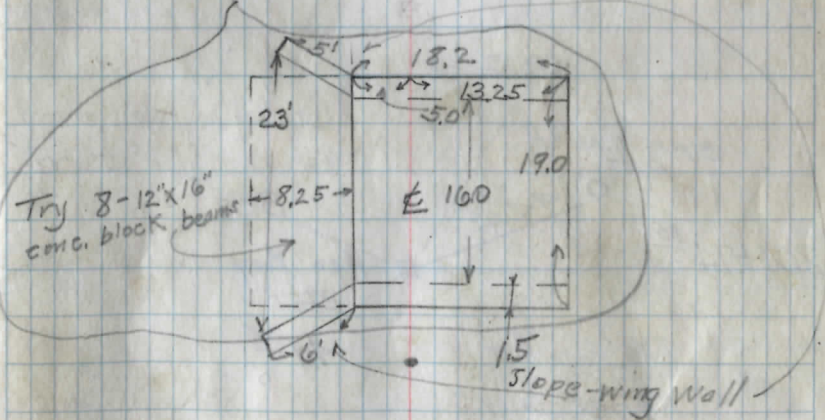 5'
18.2
13.25
5.0
23'
19.0
Try 8-12"x16"
conc. block beams
8.25
℄ 16.0
6'
1.5
Slope-wing wall